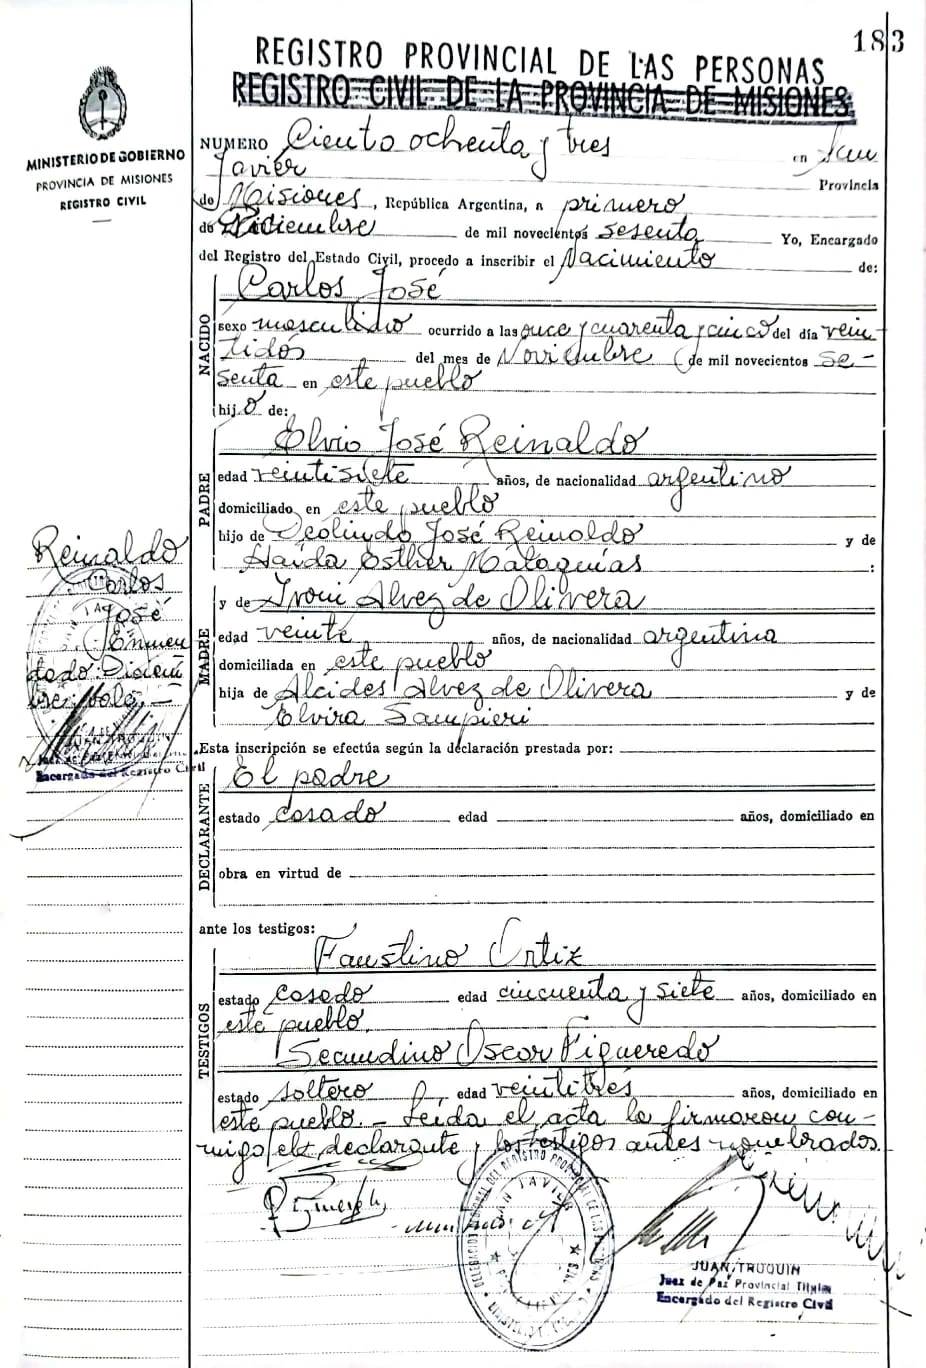 183
REGISTRO PROVINCIAL DE LAS PERSONAS
REGISTRO CIVIL DE LA PROVINCIA DE MISIONES
MINISTERIO DE GOBIERNO
PROVINCIA DE MISIONES
REGISTRO CIVIL
NUMERO Ciento ochenta y tres en San
Javier Provincia
de Misiones, República Argentina, a primero
de Diciembre de mil novecientos sesenta Yo, Encargado
del Registro del Estado Civil, procedo a inscribir el Nacimiento de:
NACIDO
Carlos José
sexo masculino ocurrido a las once y cuarenta y cinco del día vein-
tidós del mes de Noviembre de mil novecientos se-
senta en este pueblo
hijo de:
PADRE
Elvio José Reinaldo
edad veintisiete años, de nacionalidad argentino
domiciliado en este pueblo
hijo de Deolindo José Reinaldo y de
Haida Esther Malaquías :
MADRE
y de Ivoni Alvez de Olivera
edad veinte años, de nacionalidad argentina
domiciliada en este pueblo
hija de Alcides Alvez de Olivera y de
Elvira Sampieri
Reinaldo
Carlos
José
Enmen
dado: Diciem
bre: Vale.-
JUAN TRUQUIN
Encargado del Registro Civil
Esta inscripción se efectúa según la declaración prestada por:
DECLARANTE
El padre
estado casado edad años, domiciliado en
obra en virtud de
ante los testigos:
TESTIGOS
Faustino Ortiz
estado casado edad cincuenta y siete años, domiciliado en
este pueblo.
Secundino Oscar Figueredo
estado soltero, edad veintitrés años, domiciliado en
este pueblo.- Leida el acta la firmaron con-
migo el declarante y los testigos antes nombrados.
DELEGACION REGISTRO PROVINCIAL DE LAS PERSONAS
SAN JAVIER
JUAN TRUQUIN
Juez de Paz Provincial Titular
Encargado del Registro Civil